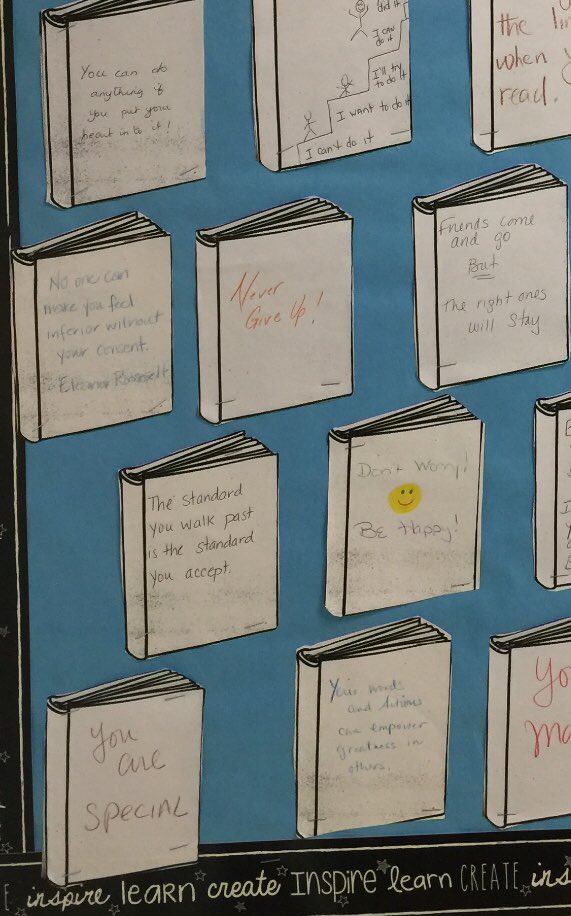 You can do
anything if
you put your
heart in to it!
did it
I can
do it
I'll try
to do it
I want to do it
I can't do it
the
when
read.
No one can
make you feel
inferior without
your consent.
Eleanor Roosevelt
Never
Give Up!
Friends come
and go
But
The right ones
will stay
The standard
you walk past
is the standard
you accept.
Don't Worry!
Be Happy!
You are
SPECIAL
Your words
and Actions
can empower
greatness in
others.
inspire learn create Inspire learn CREATE ins